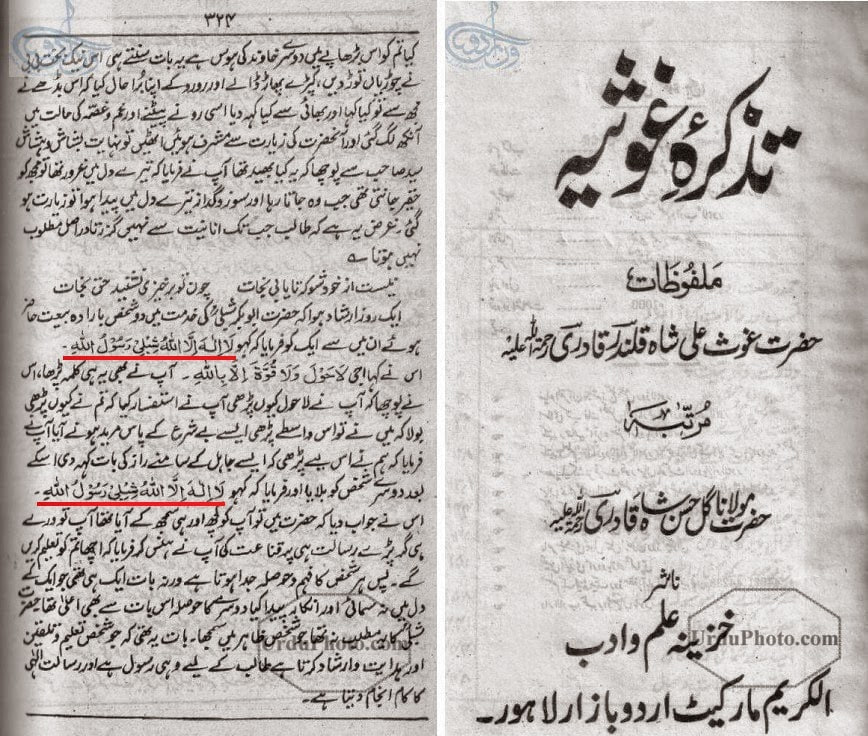 ۳۲۴
کیا تم کو اس بڑھاپے میں دوسرے خاوند کی ہوس ہے یہ بات سنتے ہی اس نیک بخت بی بی
نے چوڑیاں توڑ دیں، کپڑے پھاڑ ڈالے اور رو رو کے اپنا برا حال کیا کہ اس بڈھے نے
مجھ سے تو کیا کہا اور بھائی سے کیا کہہ دیا اسی رونے پیٹنے اور غم و غصہ کی حالت میں
آنکھ لگ گئی اور آنحضرت کی زیارت سے مشرف ہوئیں اٹھیں تو نہایت بشاش و ہشاش
سید صاحب سے پوچھا کہ یہ کیا بھید تھا آپ نے فرمایا کہ تیرے دل میں غرور تھا تو مجھ کو
حقیر جانتی تھی جب وہ جاتا رہا اور سوز و گداز تیرے دل میں پیدا ہوا تو زیارت ہو
گئی۔ غرض یہ ہے کہ طالب جب تک انانیت سے نہیں گزرتا وصل مطلوب
نہیں ہوتا ؎
نیست از خود شو کہ تا یابی نجات چوں تو برخیزی نشیند حق بجات
ایک روز ارشاد ہوا کہ حضرت ابوبکر شبلیؒ کی خدمت میں دو شخص بارادہ بیعت حاضر
ہوئے ان میں سے ایک کو فرمایا کہ کہو لَا اِلٰہَ اِلَّا اللہُ شِبْلِیْ رَسُوْلُ اللہِ۔
اس نے کہا اجی لَاحَوْلَ وَلَا قُوَّۃَ اِلَّا بِاللہِ۔ آپ نے بھی یہ ہی کلمہ پڑھا، اس
نے پوچھا کہ آپ نے لاحول کیوں پڑھی آپ نے استفسار کیا کہ تم نے کیوں پڑھی
بولا کہ میں نے تو اس واسطے پڑھی ایسے بے شرع کے پاس مرید ہونے آیا آپ نے
فرمایا کہ ہم نے اس لیے پڑھی کہ ایسے جاہل کے سامنے راز کی بات کہہ دی اسکے
بعد دوسرے شخص کو بلایا اور فرمایا کہ کہو لَا اِلٰہَ اِلَّا اللہُ شِبْلِیْ رَسُوْلُ اللہِ۔
اس نے جواب دیا کہ حضرت میں تو آپ کو کچھ اور ہی سمجھ کے آیا تھا آپ تو ورے
ہی گر پڑے رسالت ہی پر قناعت کی آپ نے ہنس کر فرمایا کہ اچھا تم کو تعلیم کریں
گے۔ پس ہر شخص کا فہم و حوصلہ جدا ہوتا ہے ورنہ بات ایک ہی تھی جو ایک کے
دل میں نہ سمائی اور انکار پیدا کیا دوسرے کا حوصلہ اس بات سے بھی اعلیٰ تھا حضرت
شبلیؒ کا یہ مطلب نہ تھا جو شخص ظاہر میں سمجھا۔ بات یہ تھی کہ جو شخص تعلیم و تلقین
اور ہدایت و ارشاد کرتا ہے طالب کے لیے وہی رسول ہے اور رسالت الٰہی
کا کام انجام دیتا ہے۔
UrduPhoto.com
تذکرۂ غوثیہ
ملفوظات
حضرت غوث علی شاہ قلندر قادری رحمۃ اللہ علیہ
مرتبہ
حضرت مولانا گل حسن شاہ قادری رحمۃ اللہ علیہ
ناشر
خزینہ علم و ادب
الکریم مارکیٹ اردو بازار لاہور۔
UrduPhoto.com